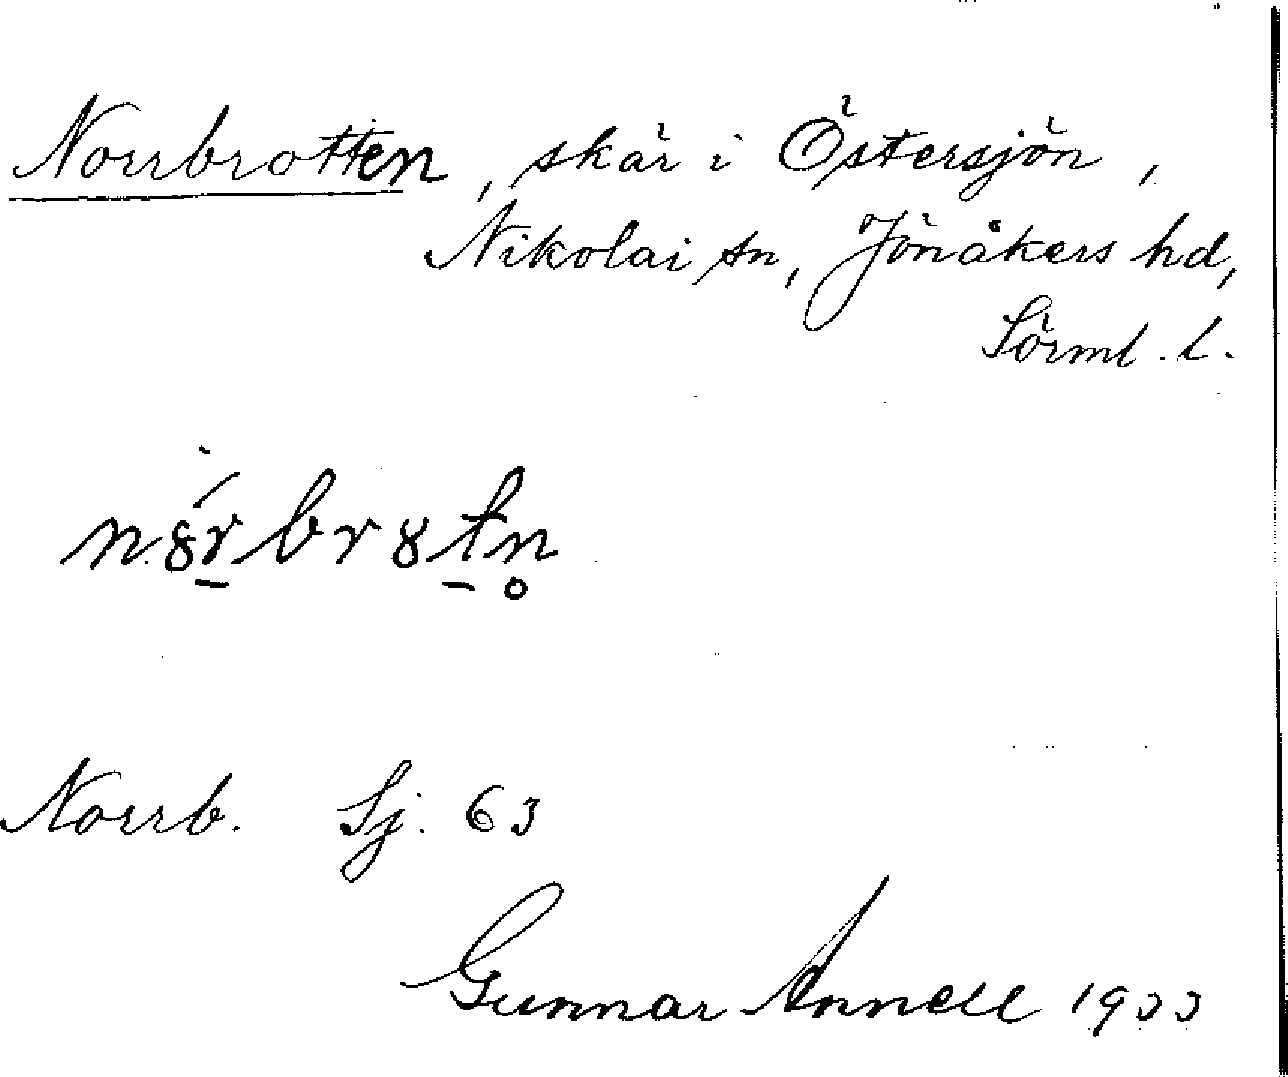 Norrbrotten, skär i Östersjön,
Nikolai sn, Jönåkers hd,
Sörml. l.
n8́r̲br8t̲n̥
Norrb. Sj. 63
Gunnar Annell 1933